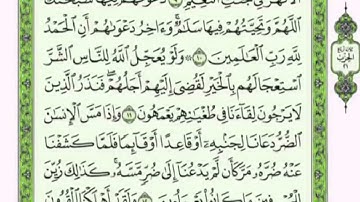 ٱللَّهُمَّ وَتَحِيَّتُهُمْ فِيهَا سَلَٰمٌ ۚ وَءَاخِرُ دَعْوَىٰهُمْ أَنِ ٱلْحَمْدُ
لِلَّهِ رَبِّ ٱلْعَٰلَمِينَ ۝١٠ ۞ وَلَوْ يُعَجِّلُ ٱللَّهُ لِلنَّاسِ ٱلشَّرَّ
ٱسْتِعْجَالَهُم بِٱلْخَيْرِ لَقُضِىَ إِلَيْهِمْ أَجَلُهُمْ ۖ فَنَذَرُ ٱلَّذِينَ
لَا يَرْجُونَ لِقَآءَنَا فِى طُغْيَٰنِهِمْ يَعْمَهُونَ ۝١١ وَإِذَا مَسَّ ٱلْإِنسَٰنَ
ٱلضُّرُّ دَعَانَا لِجَنۢبِهِۦٓ أَوْ قَاعِدًا أَوْ قَآئِمًا فَلَمَّا كَشَفْنَا
عَنْهُ ضُرَّهُۥ مَرَّ كَأَن لَّمْ يَدْعُنَآ إِلَىٰ ضُرٍّ مَّسَّهُۥ ۚ كَذَٰلِكَ زُيِّنَ